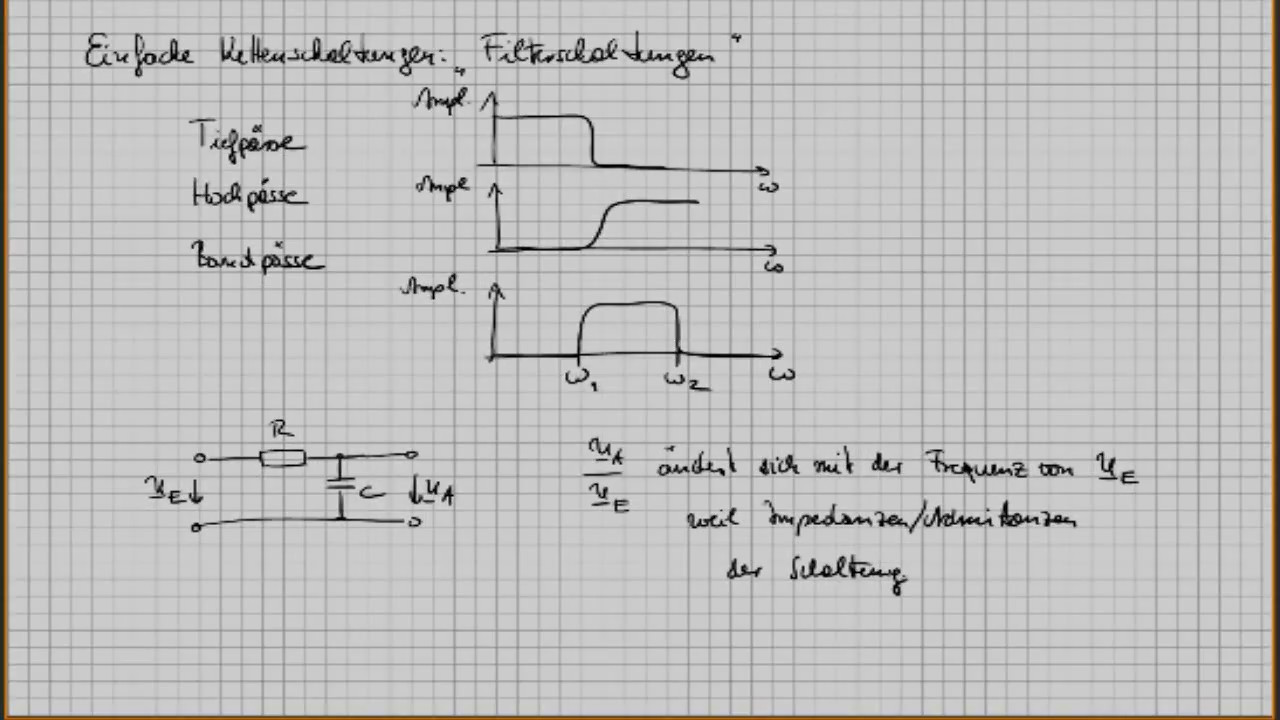 Einfache Kettenschaltungen: „Filterschaltungen"
Ampl.
Tiefpässe
ω
Ampl
Hochpässe
ω
Bandpässe
Ampl.
ω₁ ω₂ ω
R
C
u_E
u_A
u_A / u_E ändert sich mit der Frequenz von u_E
weil Impedanzen/Admittanzen
der Schaltung